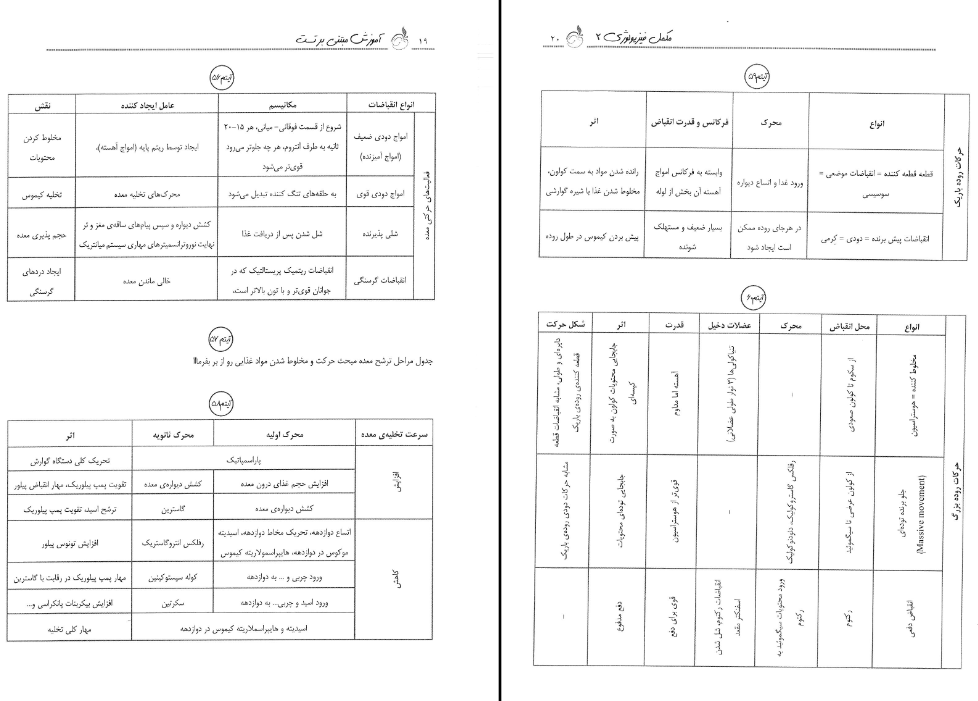 مکمل فیزیولوژی ۲
۲۰
آیتم ۵۹
حرکات روده باریک
انواع
محرک
فرکانس و قدرت انقباض
اثر
قطعه قطعه کننده = انقباضات موضعی =
سوسیسی
ورود غذا و اتساع دیواره
وابسته به فرکانس امواج
آهسته آن بخش از لوله
رانده شدن مواد به سمت کولون،
مخلوط شدن غذا با شیره گوارشی
انقباضات پیش برنده = دودی = کرمی
در هرجای روده ممکن
است ایجاد شود
بسیار ضعیف و مستهلک
شونده
پیش بردن کیموس در طول روده
آیتم ۶۰
حرکات روده بزرگ
انواع
محل انقباض
محرک
عضلات دخیل
قدرت
اثر
شکل حرکت
مخلوط کننده = هوستراسیون
از سکوم تا کولون صعودی
–
تنیاکولی‌ها (۳ نوار طولی عضلانی)
آهسته اما مداوم
جابجایی محتویات کولون به صورت
کیسه‌ای
دایره‌ای و طولی، مشابه انقباضات قطعه
قطعه کننده‌ی روده‌ی باریک
جلو برنده توده‌ای
(Massive movement)
از کولون عرضی تا سیگموئید
رفلکس گاستروکولیک، دئودنوکولیک
–
قوی‌تر از هوستراسیون
جابجایی توده‌ای محتویات
مشابه حرکات دودی روده‌ی باریک
انقباض دفعی
رکتوم
ورود محتویات سیگموئید به
رکتوم
انقباضات رکتوم، شل شدن
اسفنکتر مقعد
قوی برای دفع
دفع مدفوع
–
۱۹
آموزش مبتنی بر تست
آیتم ۵۶
انواع انقباضات
مکانیسم
عامل ایجاد کننده
نقش
فعالیت‌های حرکتی معده
امواج دودی ضعیف
(امواج آمیزنده)
شروع از قسمت فوقانی- میانی، هر ۱۵-۲۰
ثانیه به طرف آنتروم، هر چه جلوتر می‌رود
قوی‌تر می‌شود
ایجاد توسط ریتم پایه (امواج آهسته)،
مخلوط کردن
محتویات
امواج دودی قوی
به حلقه‌های تنگ کننده تبدیل می‌شود
محرک‌های تخلیه معده
تخلیه کیموس
شلی پذیرنده
شل شدن پس از دریافت غذا
کشش دیواره و سپس پیام‌های ساقه‌ی مغز و در
نهایت نوروترانسمیترهای مهاری سیستم میانتریک
حجم پذیری معده
انقباضات گرسنگی
انقباضات ریتمیک پریستالتیک که در
جوانان قوی‌تر و با تون بالاتر است.
خالی ماندن معده
ایجاد دردهای
گرسنگی
آیتم ۵۷
جدول مراحل ترشح معده مبحث حرکت و مخلوط شدن مواد غذایی رو از بر بفرما!!
آیتم ۵۸
سرعت تخلیه‌ی معده
محرک اولیه
محرک ثانویه
اثر
افزایش
پاراسمپاتیک
تحریک کلی دستگاه گوارش
افزایش حجم غذای درون معده
کشش دیواره‌ی معده
تقویت پمپ پیلوریک، مهار انقباض پیلور
کشش دیواره‌ی معده
گاسترین
ترشح اسید، تقویت پمپ پیلوریک
کاهش
اتساع دوازدهه، تحریک مخاط دوازدهه، اسیدیته
موکوس در دوازدهه، هایپراسمولاریته کیموس
رفلکس انتروگاستریک
افزایش تونوس پیلور
ورود چربی و ... به دوازدهه
کوله سیستوکینین
مهار پمپ پیلوریک در رقابت با گاسترین
ورود اسید و چربی... به دوازدهه
سکرتین
افزایش بیکربنات پانکراسی و...
اسیدیته و هایپراسمولاریته کیموس در دوازدهه
مهار کلی تخلیه